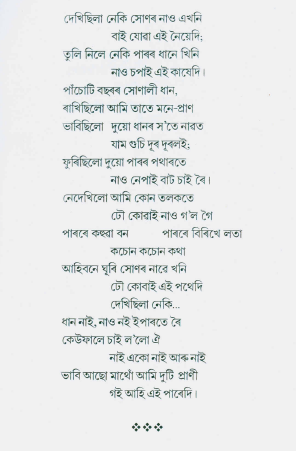 দেখিছিলা নেকি সোণৰ নাও এখনি
বাই যোৱা এই নৈয়েদি;
তুলি নিলে নেকি পাৰৰ ধানে খিনি
নাও চপাই এই কাষেদি।
পাঁচোটি বছৰৰ সোণালী ধান,
ৰাখিছিলো আমি তাতে মনে-প্ৰাণ
ভাবিছিলো দুয়ো ধানৰ স'তে নাৱত
যাম গুচি দূৰ দূৰলই;
ফুৰিছিলো দুয়ো পাৰৰ পথাৰতে
নাও নেপাই বাট চাই ৰৈ।
নেদেখিলো আমি কোন তলকতে
ঢৌ কোৱাই নাও গ'ল গৈ
পাৰৰে কহুৱা বন পাৰৰে বিৰিখে লতা
কচোন কচোন কথা
আহিবনে ঘূৰি সোণৰ নাৱে খনি
ঢৌ কোবাই এই পথেদি
দেখিছিলা নেকি...
ধান নাই, নাও নই ইপাৰতে ৰৈ
কেউফালে চাই ল'লো ঐ
নাই একো নাই আৰু নাই
ভাবি আছো মাথোঁ আমি দুটি প্ৰাণী
গই আহি এই পাৰেদি।